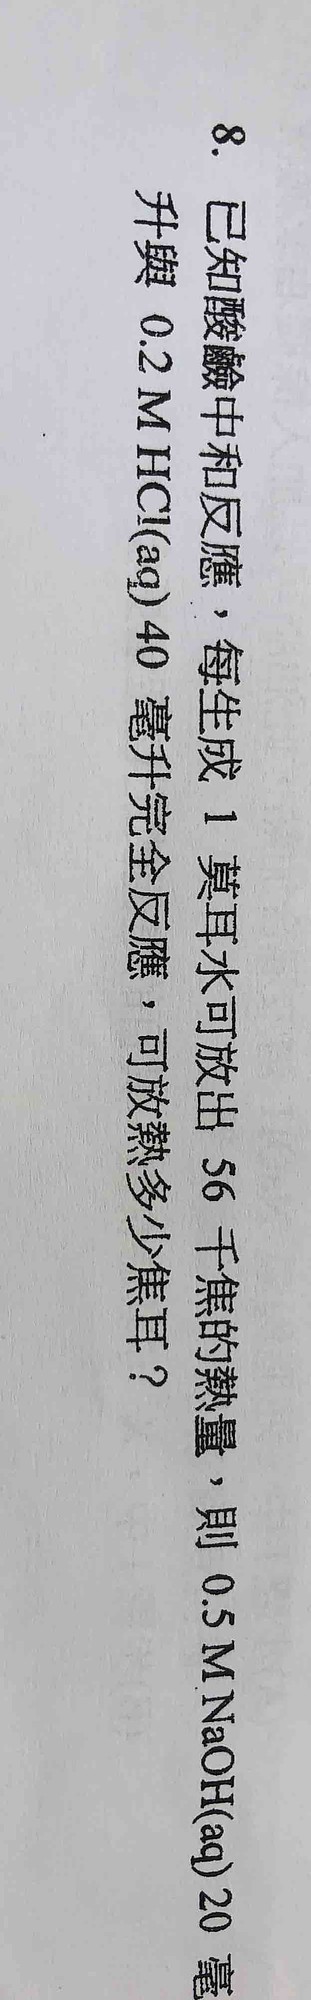 8. 已知酸鹼中和反應，每生成 1 莫耳水可放出 56 千焦的熱量，則 0.5 M NaOH(aq) 20 毫
升與 0.2 M HCl(aq) 40 毫升完全反應，可放熱多少焦耳？